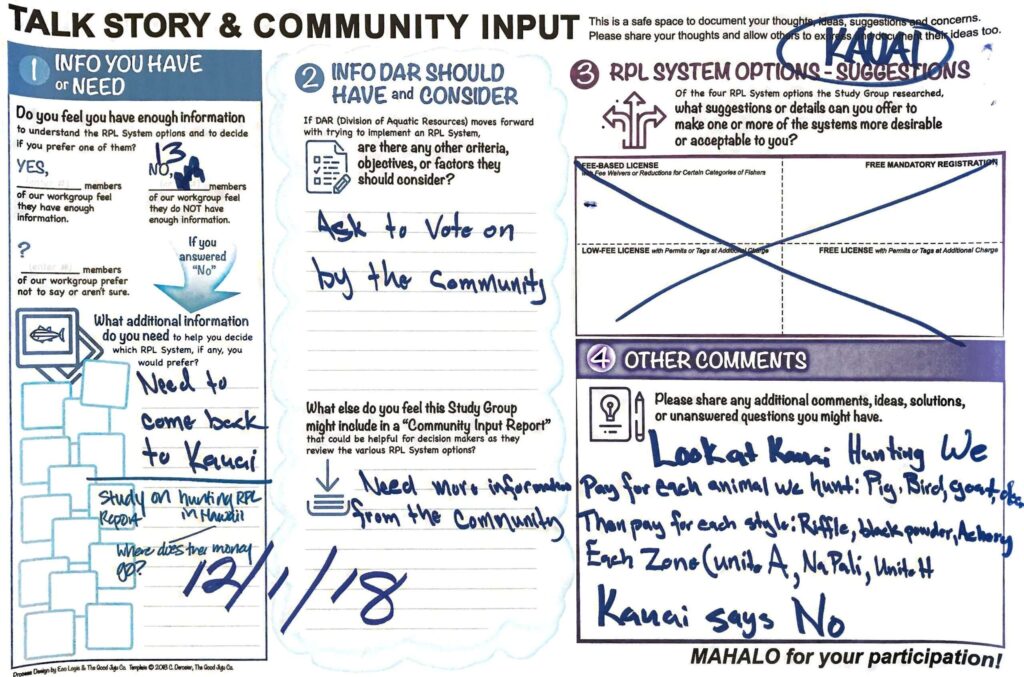 TALK STORY & COMMUNITY INPUT
This is a safe space to document your thoughts, ideas, suggestions and concerns.
Please share your thoughts and allow others to express and document their ideas too.
KAUAI
1 INFO YOU HAVE
or NEED
Do you feel you have enough information
to understand the RPL System options and to decide
if you prefer one of them?
13
YES,
members
of our workgroup feel
they have enough
information.
NO,
members
of our workgroup feel
they do NOT have
enough information.
?
members
of our workgroup prefer
not to say or aren't sure.
If you
answered
"No"
What additional information
do you need to help you decide
which RPL System, if any, you
would prefer?
Need to
come back
to Kauai
Study on hunting RPL
Report in Hawaii
Where does the money
go?
12/1/18
Process Design by Eco Logix & The Good Juju Co. Template © 2018 C. Deroser, The Good Juju Co.
2 INFO DAR SHOULD
HAVE and CONSIDER
If DAR (Division of Aquatic Resources) moves forward
with trying to implement an RPL System,
are there any other criteria,
objectives, or factors they
should consider?
Ask to Vote on
by the Community
What else do you feel this Study Group
might include in a "Community Input Report"
that could be helpful for decision makers as they
review the various RPL System options?
Need more information
from the Community
3 RPL SYSTEM OPTIONS - SUGGESTIONS
Of the four RPL System options the Study Group researched,
what suggestions or details can you offer to
make one or more of the systems more desirable
or acceptable to you?
FEE-BASED LICENSE
with Fee Waivers or Reductions for Certain Categories of Fishers
FREE MANDATORY REGISTRATION
LOW-FEE LICENSE with Permits or Tags at Additional Charge
FREE LICENSE with Permits or Tags at Additional Charge
4 OTHER COMMENTS
Please share any additional comments, ideas, solutions,
or unanswered questions you might have.
Look at Kauai Hunting We
Pay for each animal we hunt: Pig, Bird, goat, etc.
Then pay for each style: Riffle, black powder, Achery
Each Zone (unit A, Na Pali, Unit H
Kauai says No
MAHALO for your participation!